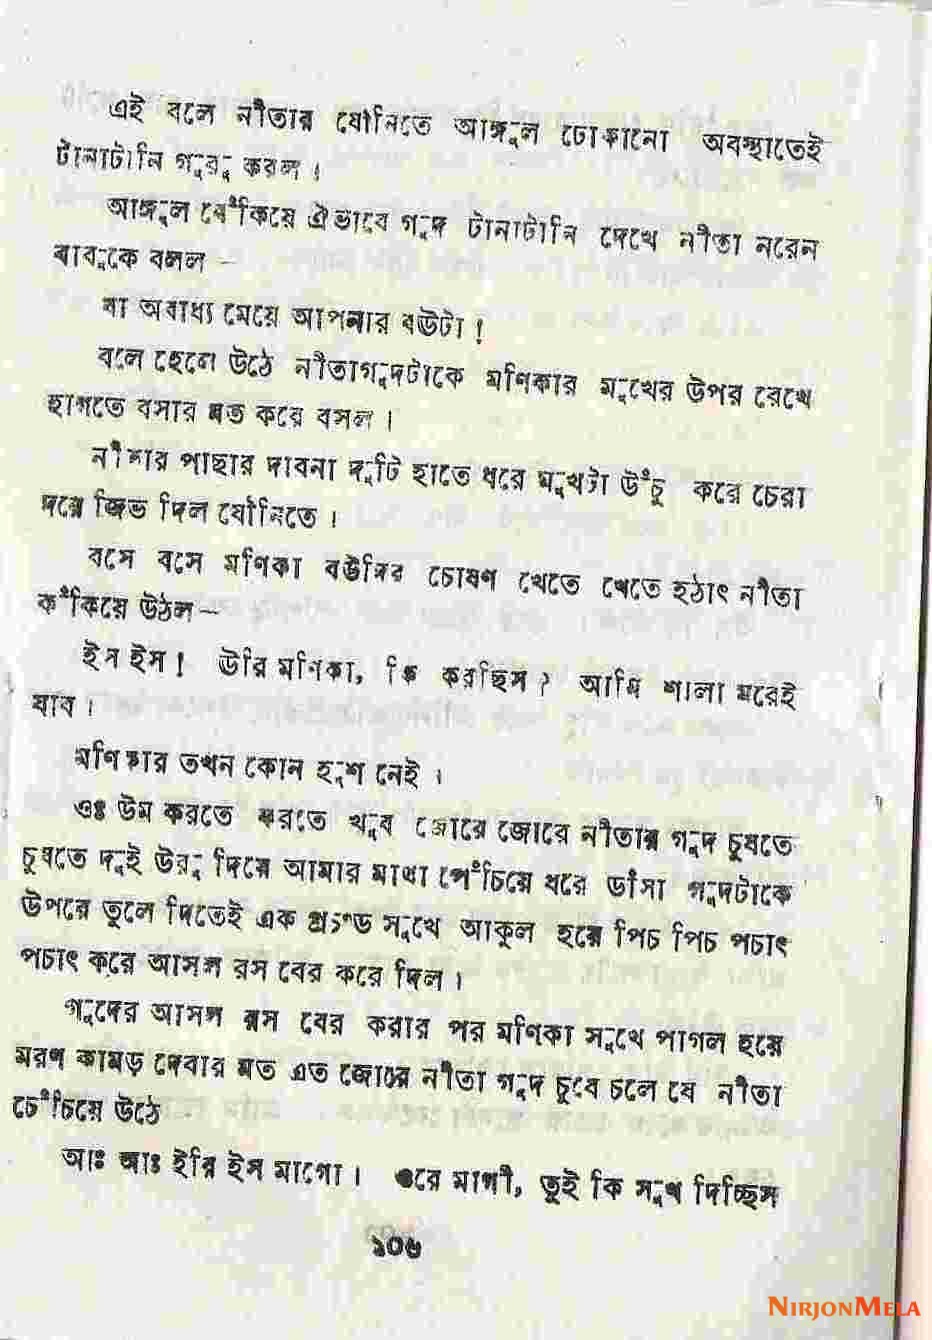 এই বলে নীতার যোনিতে আঙ্গুল ঢোকানো অবস্থাতেই
টানাটানি শুরু করল।
আঙ্গুল বেঁকিয়ে ঐভাবে গুদ টানাটানি দেখে নীতা নরেন
বাবুকে বলল –
যা অবাধ্য মেয়ে আপনার বউটা!
বলে হেসে উঠে নীতাগুদটাকে মণিকার মুখের উপর রেখে
হাগতে বসার মত করে বসল।
নীতার পাছার দাবনা দুটি হাতে ধরে মুখটা উঁচু করে চেরা
দিয়ে জিভ দিল যোনিতে।
বসে বসে মণিকা বউদির চোষণ খেতে খেতে হঠাৎ নীতা
কঁকিয়ে উঠল –
ইস ইস! উরি মণিকা, কি করছিস? আমি শালা মরেই
যাব।
মণিকার তখন কোন হুশ নেই।
ওঃ উম করতে করতে খুব জোরে জোরে নীতার গুদ চুষতে
চুষতে দুই উরু দিয়ে আমার মাথা পেঁচিয়ে ধরে ডাঁসা গুদটাকে
উপরে তুলে দিতেই এক প্রচণ্ড সুখে আকুল হয়ে পিচ পিচ পচাৎ
পচাৎ করে আসল রস বের করে দিল।
গুদের আসল রস বের করার পর মণিকা সুখে পাগল হয়ে
মরণ কামড় দেবার মত এত জোরে নীতা গুদ চুষে চলে যে নীতা
চেঁচিয়ে উঠে
আঃ আঃ ইরি ইস মাগো। ওরে মাগী, তুই কি সুখ দিচ্ছিস
১০৬
NIRJONMELA